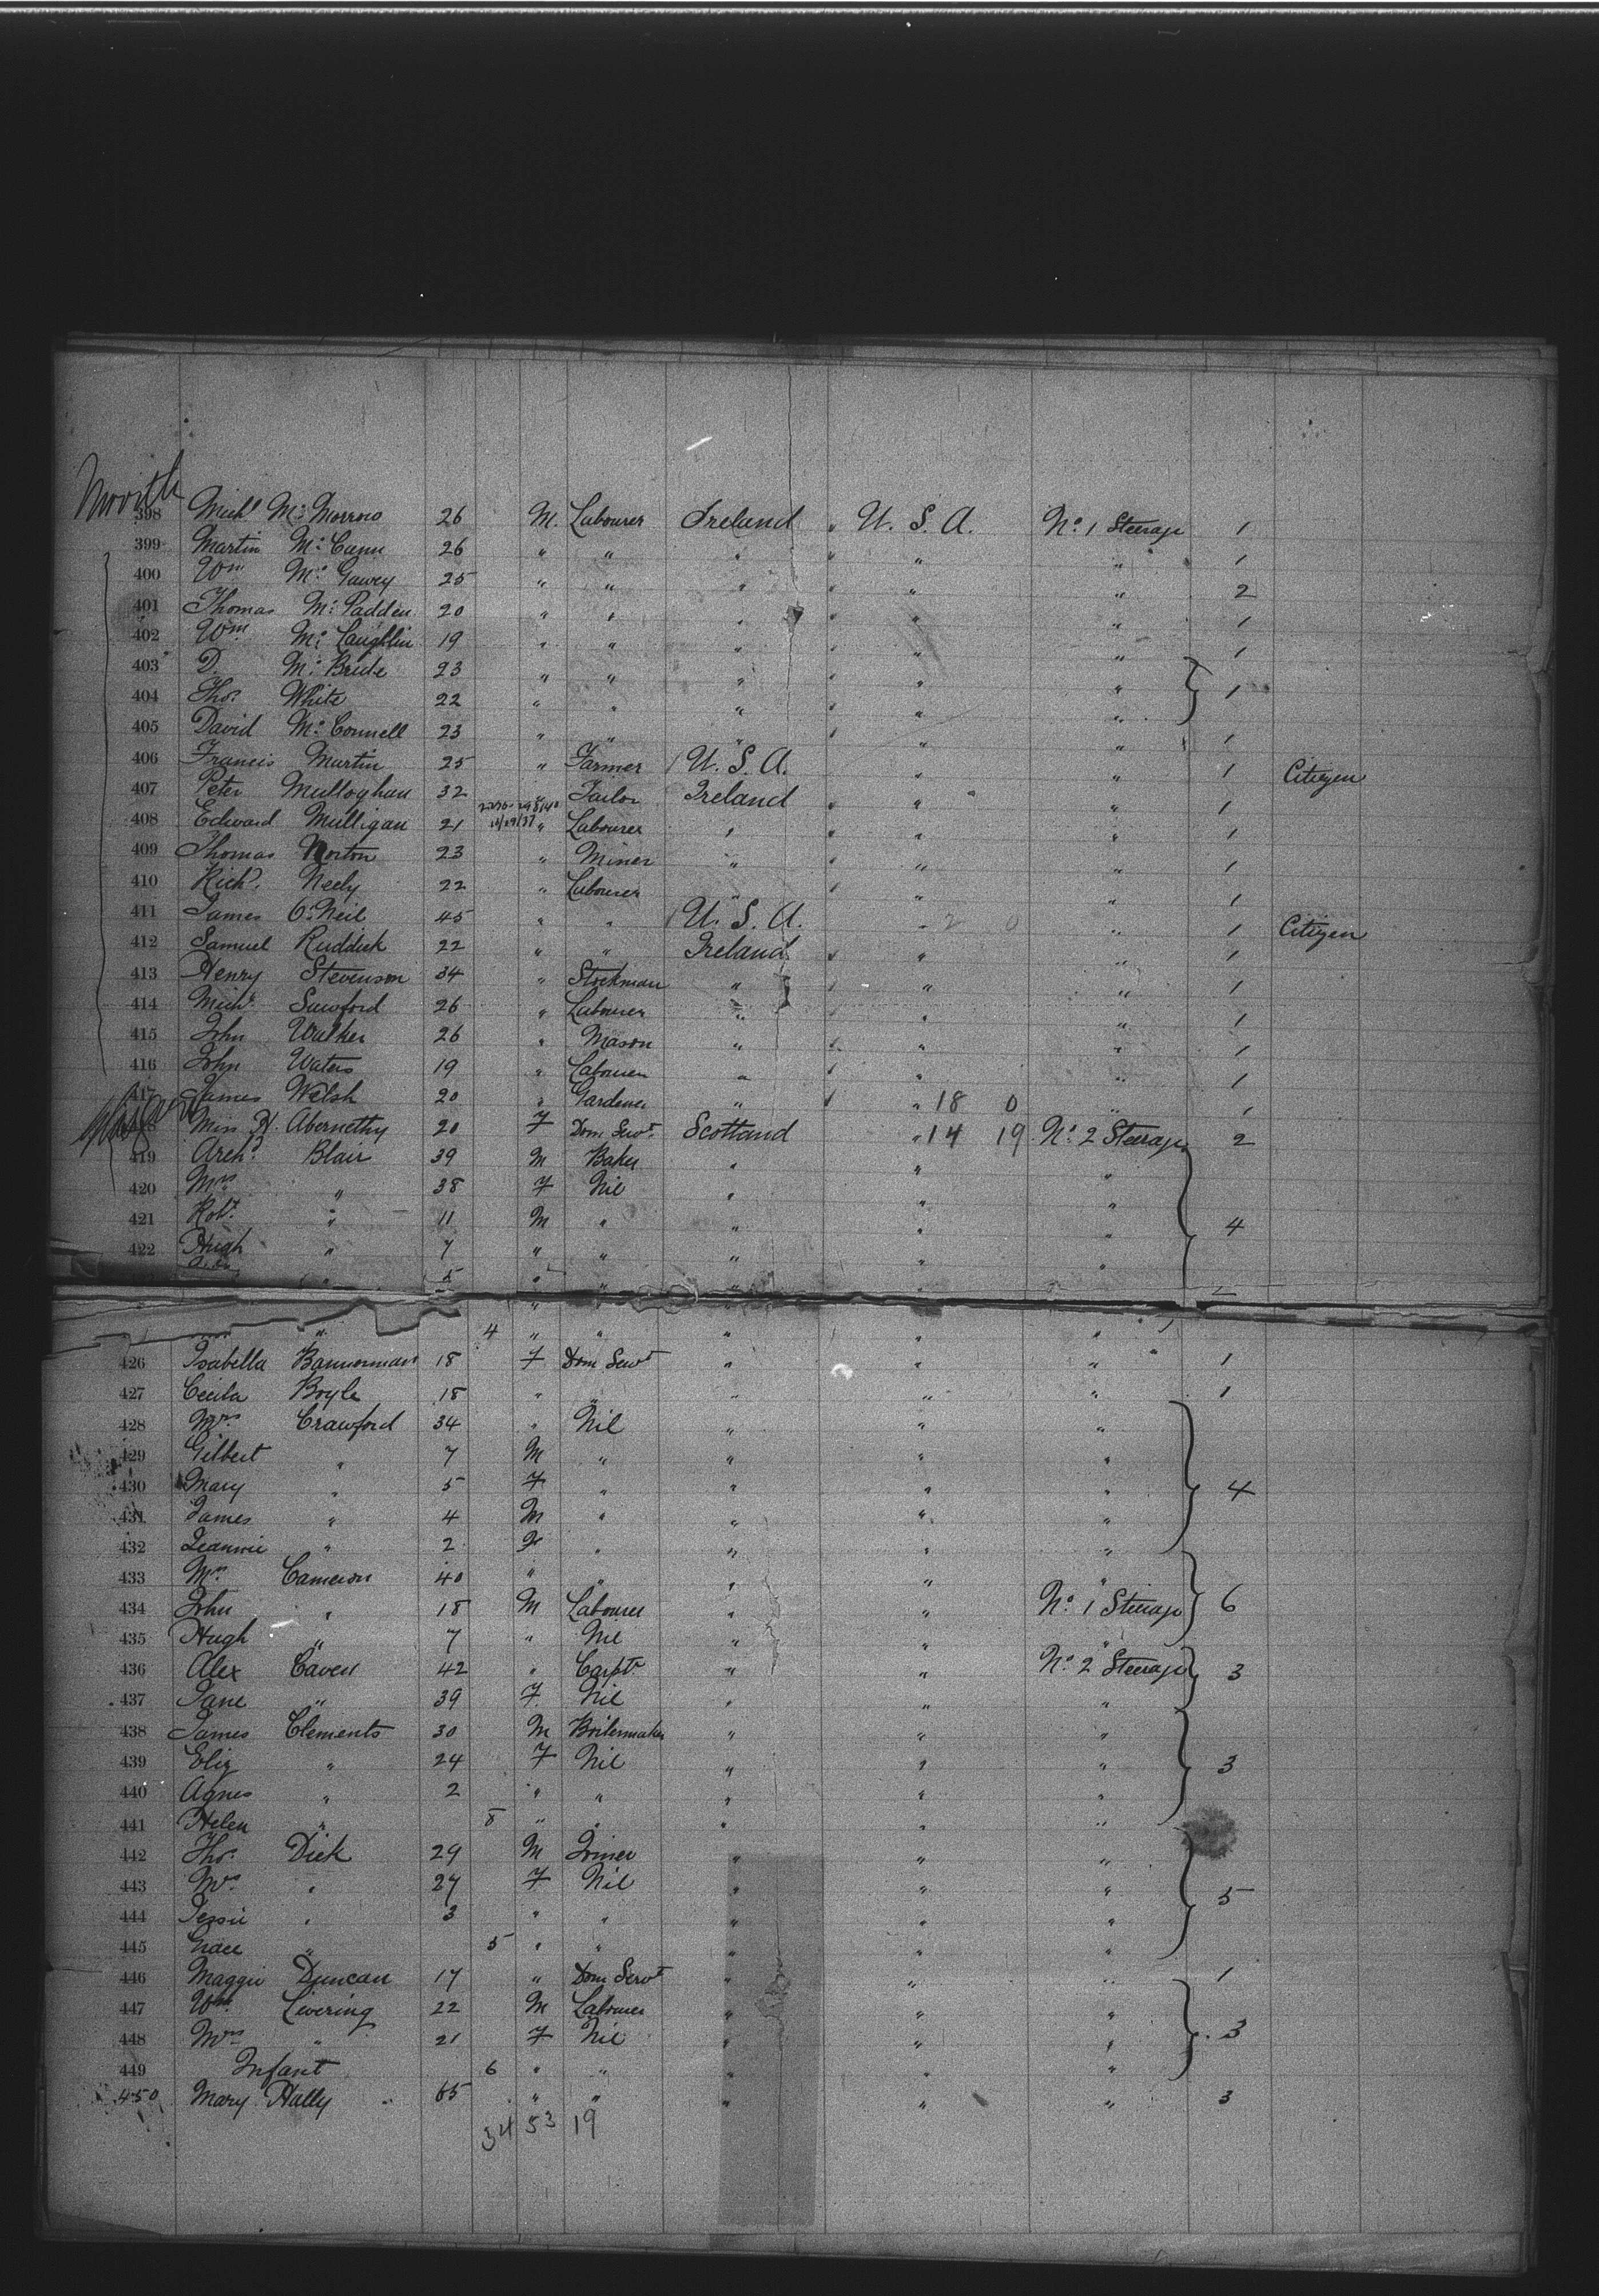 398 Michl. Mc. Morrow 26 M. Labourer Ireland " U. S. A. No. 1 Steerage 1
399 Martin Mc. Cann 26 " " " " " " 1
400 Wm. Mc. 25 " " " " " " 2
401 Thomas Mc. Padden 20 " " " " " " 1
402 Wm. Mc. Laughlin 19 " " " " " " 1
403 D. Mc. Bride 23 " " " " " " 1
404 Thos. White 22 " " " " " "
405 David Mc. Connell 23 " " " " " " 1
406 Francis Martin 25 " Farmer U. S. A. " " 1 Citizen
407 Peter Mulloghan 32 " Tailor Ireland " " " 1
408 Edward Mulligan 21 " Labourer " " " " 1
409 Thomas Norton 23 " Miner " " " " 1
410 Richd. Neely 22 " Labourer " " " " 1
411 James O'Neil 45 " " U. S. A. " 2 0 " 1 Citizen
412 Samuel Ruddick 22 " " Ireland " " " 1
413 Henry Stevenson 34 " Stockman " " " " 1
414 Michl. 26 " Labourer " " " " 1
415 John Walker 26 " Mason " " " " 1
416 John Waters 19 " Labourer " " " " 1
417 James Welsh 20 " Gardener " " " 18 0 " 1
Miss Abernethy 20 F Dom Servt. Scotland " 14 19 No. 2 Steerage 2
419 Archd. Blair 39 M Baker " " "
420 Mrs " 38 F Nil " " "
421 Robt. " 11 M " " " " 4
422 Hugh " 7 " " " " "
" 5 " " " "
" 4 " " " " "
426 Isabella Bannerman 18 F Dom Servt " " " 1
427 Cecila Boyle 18 " " " " " 1
428 Mrs Crawford 34 " Nil " " "
429 Gilbert " 7 M " " " "
430 Mary " 5 F " " " " 4
431 James " 4 M " " " "
432 Jeannie " 2 F " " " "
433 Mrs. Cameron 40 " " " " "
434 John " 18 M Labourer " " No. 1 Steerage 6
435 Hugh " 7 " Nil " " "
436 Alex Caven 42 " Carptr " " No. 2 Steerage 3
437 Jane " 39 F. Nil " " "
438 James Clements 30 M Boilermaker " " "
439 Eliz " 24 F Nil " " " 3
440 Agnes " 2 " " " " "
441 Helen " 8 " " " " "
442 Thos. Dick 29 M Joiner " " "
443 Mrs " 27 F Nil " " " 5
444 Jessie " 3 " " " " "
445 Grace " 5 " " " " "
446 Maggie Duncan 17 " Dom Servt " " " 1
447 Wm. Livering 22 M Labourer " " "
448 Mrs " 21 F Nil " " " 3
449 Infant 6 " " " " "
450 Mary Hally 65 " " " " " 3
34 53 19